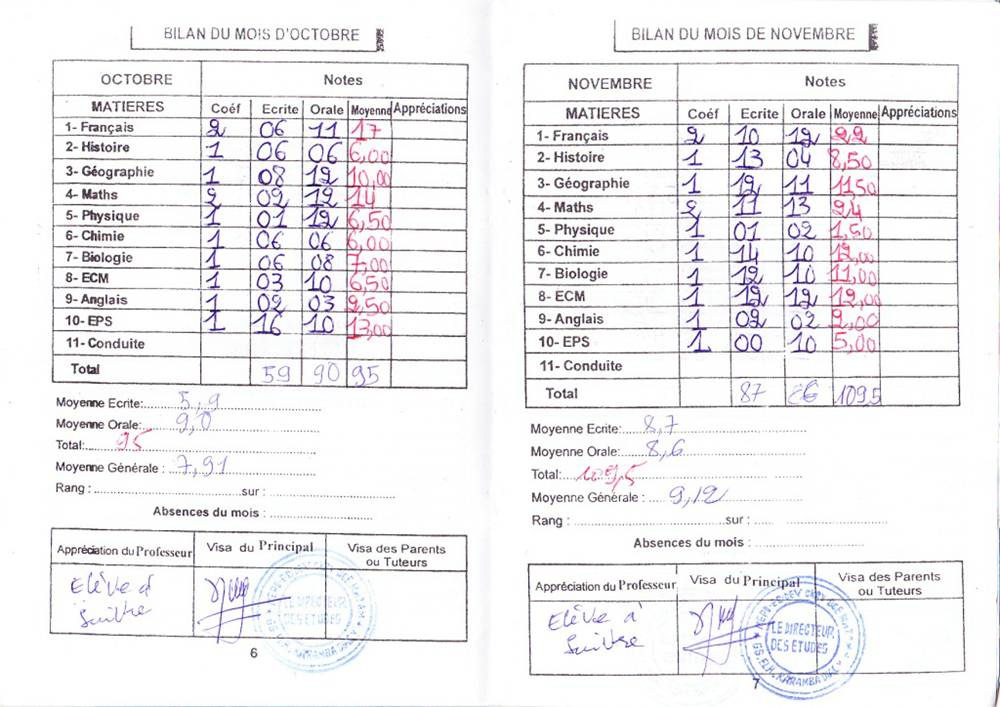 BILAN DU MOIS D'OCTOBRE
OCTOBRE Notes
MATIERES Coéf Ecrite Orale Moyenne Appréciations
1- Français 2 06 11 17
2- Histoire 1 06 06 6,00
3- Géographie 1 08 12 10,00
4- Maths 2 02 12 14
5- Physique 1 01 12 6,50
6- Chimie 1 06 06 6,00
7- Biologie 1 06 08 7,00
8- ECM 1 03 10 6,50
9- Anglais 1 02 03 2,50
10- EPS 1 16 10 13,00
11- Conduite
Total 59 90 95
Moyenne Ecrite: 5,9
Moyenne Orale: 9,0
Total: 95
Moyenne Générale : 7,91
Rang : sur :
Absences du mois :
Appréciation du Professeur Visa du Principal Visa des Parents
ou Tuteurs
Elève à
Suivre
LE DIRECTEUR
DES ETUDES
6
BILAN DU MOIS DE NOVEMBRE
NOVEMBRE Notes
MATIERES Coéf Ecrite Orale Moyenne Appréciations
1- Français 2 10 12 22
2- Histoire 1 13 04 8,50
3- Géographie 1 12 11 11,50
4- Maths 2 11 13 24
5- Physique 1 01 02 1,50
6- Chimie 1 14 10 12,00
7- Biologie 1 12 10 11,00
8- ECM 1 12 12 12,00
9- Anglais 1 02 02 2,00
10- EPS 1 00 10 5,00
11- Conduite
Total 87 86 109,5
Moyenne Ecrite: 8,7
Moyenne Orale: 8,6
Total: 109,5
Moyenne Générale : 9,12
Rang : sur :
Absences du mois :
Appréciation du Professeur Visa du Principal Visa des Parents
ou Tuteurs
Elève à
Suivre
LE DIRECTEUR
DES ETUDES
7